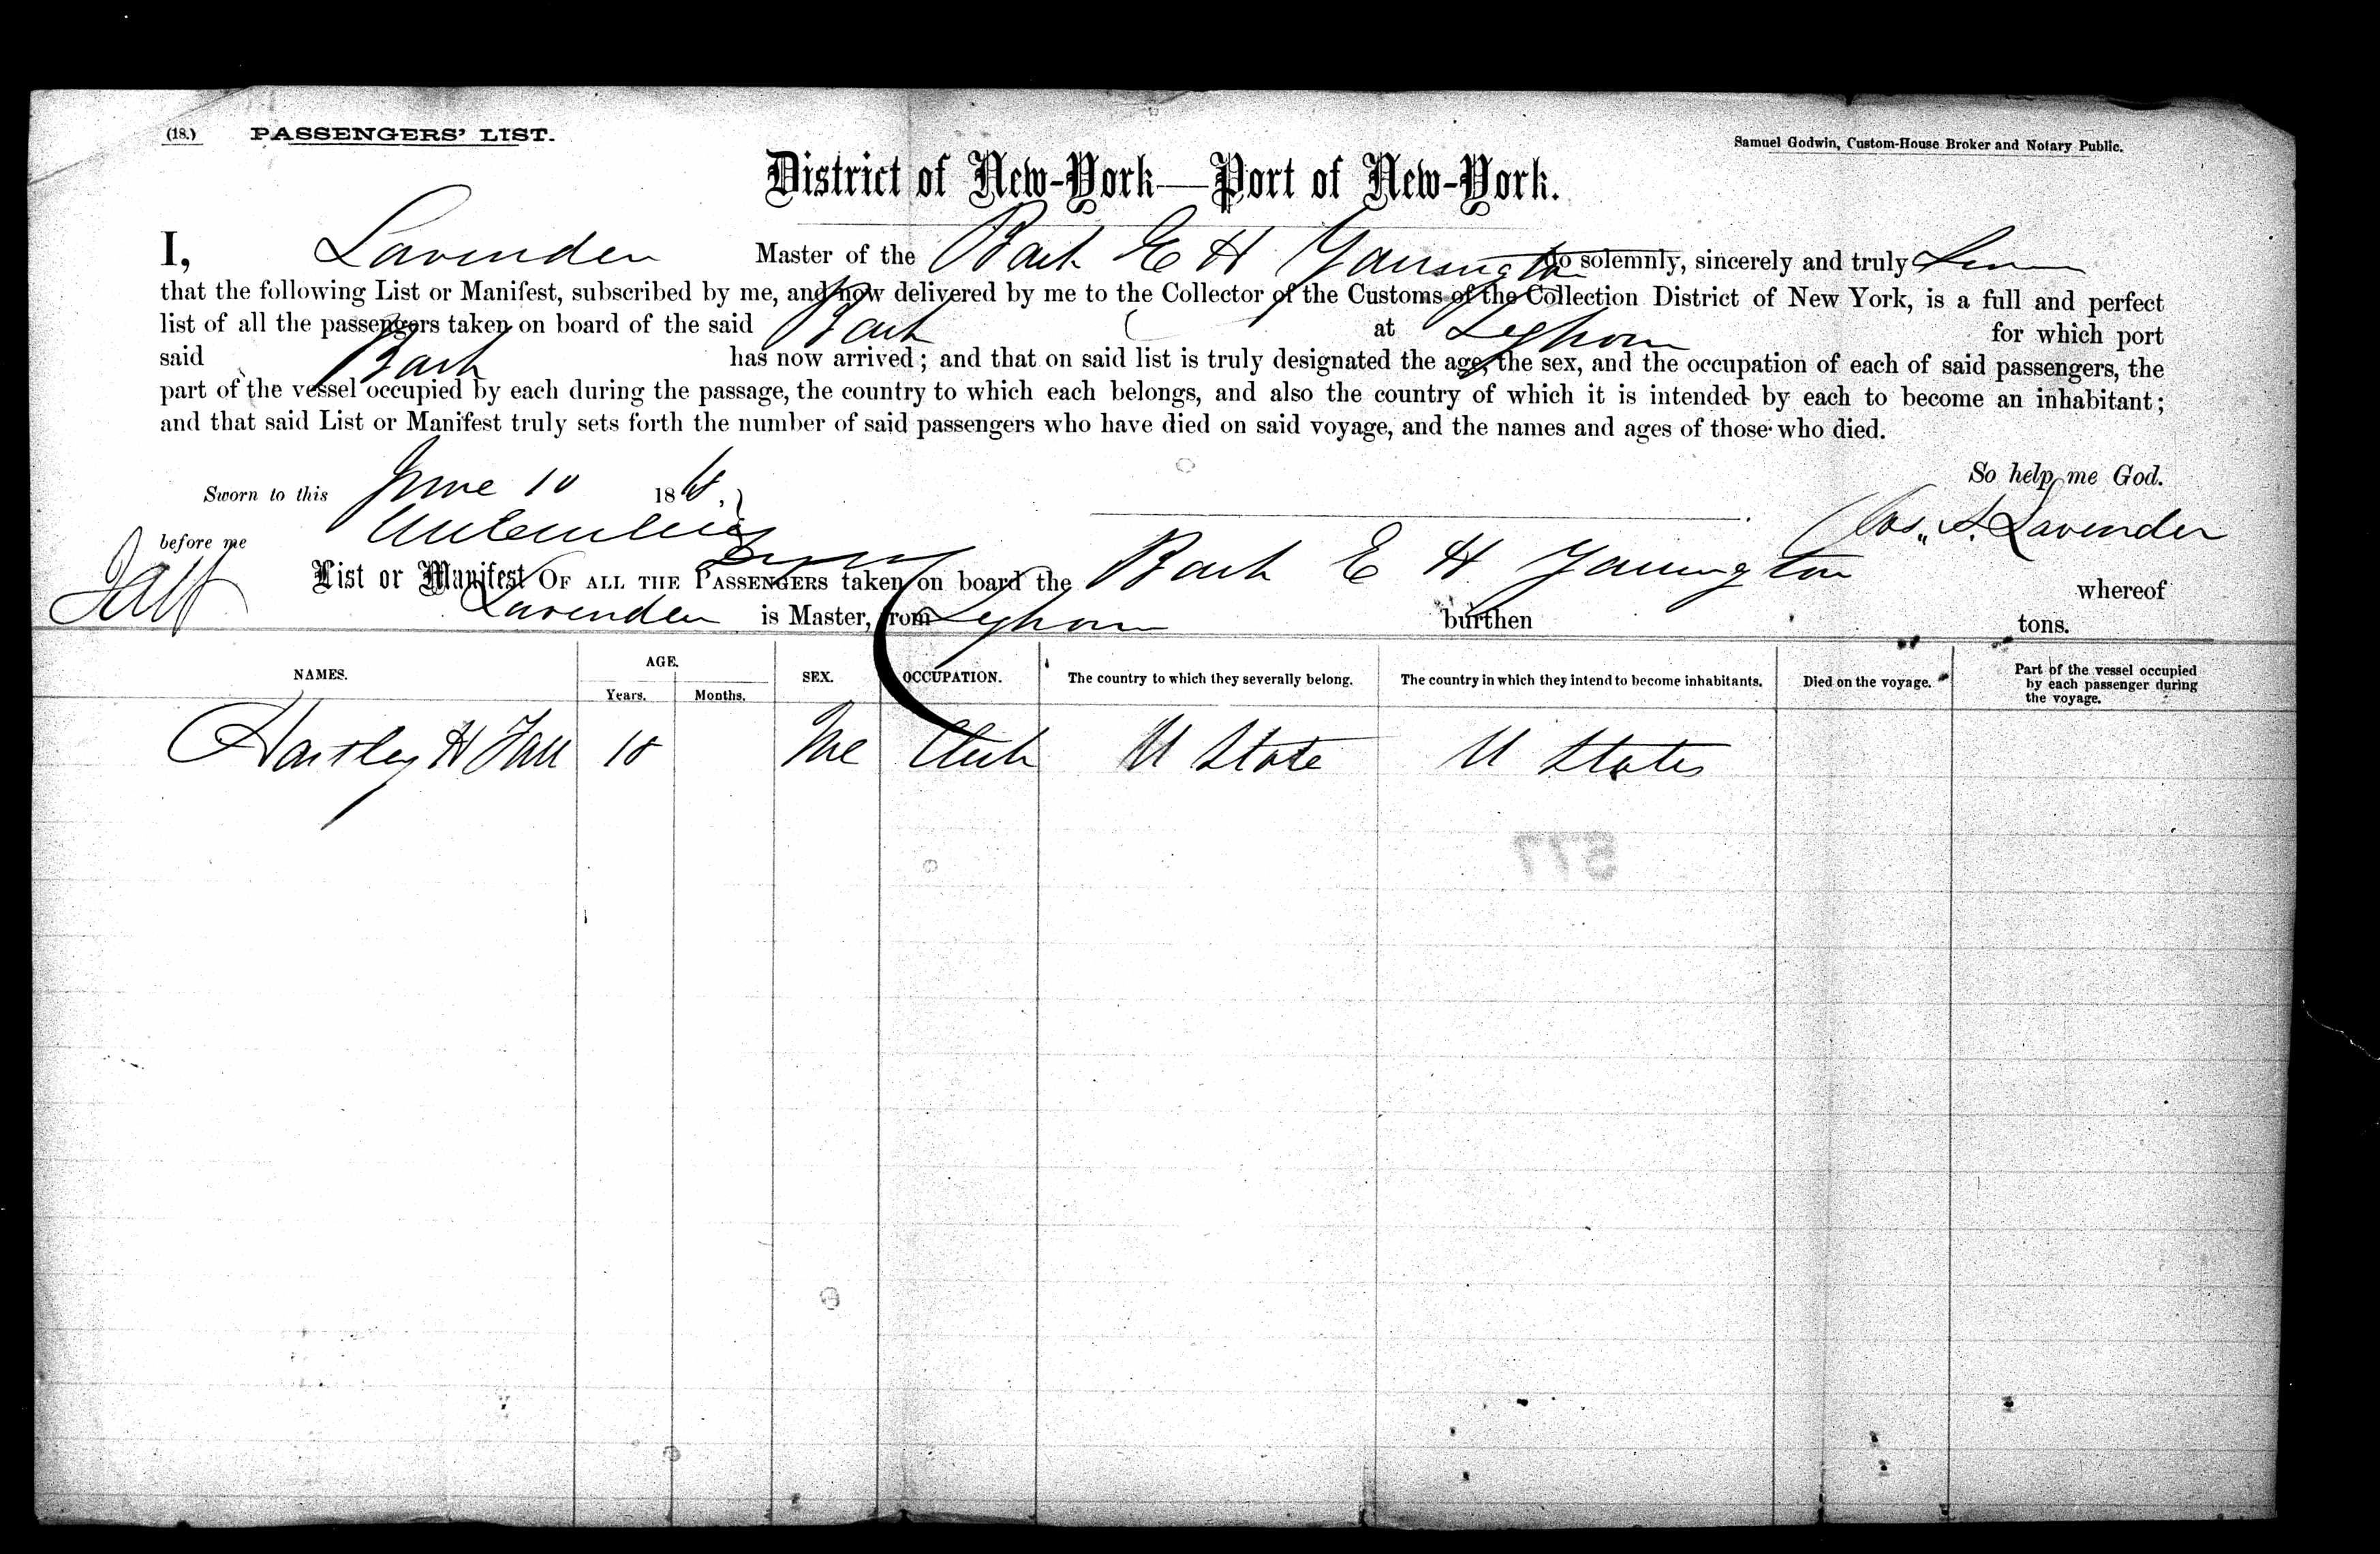 (18.) PASSENGERS' LIST.
Samuel Godwin, Custom-House Broker and Notary Public.
District of New-York—Port of New-York.
I, Lavender Master of the Bark E H Yarrington do solemnly, sincerely and truly
that the following List or Manifest, subscribed by me, and now delivered by me to the Collector of the Customs of the Collection District of New York, is a full and perfect
list of all the passengers taken on board of the said Bark at Leghorn for which port
said Bark has now arrived; and that on said list is truly designated the age, the sex, and the occupation of each of said passengers, the
part of the vessel occupied by each during the passage, the country to which each belongs, and also the country of which it is intended by each to become an inhabitant;
and that said List or Manifest truly sets forth the number of said passengers who have died on said voyage, and the names and ages of those who died.
So help me God.
Sworn to this June 10 186
Jos. A. Lavender
before me
List or Manifest OF ALL THE PASSENGERS taken on board the Bark E H Yarrington whereof
Lavender is Master, from Leghorn burthen tons.
NAMES. AGE. Years. Months. SEX. OCCUPATION. The country to which they severally belong. The country in which they intend to become inhabitants. Died on the voyage. Part of the vessel occupied by each passenger during the voyage.
Hartley H 18 Me Clerk U State U States
577